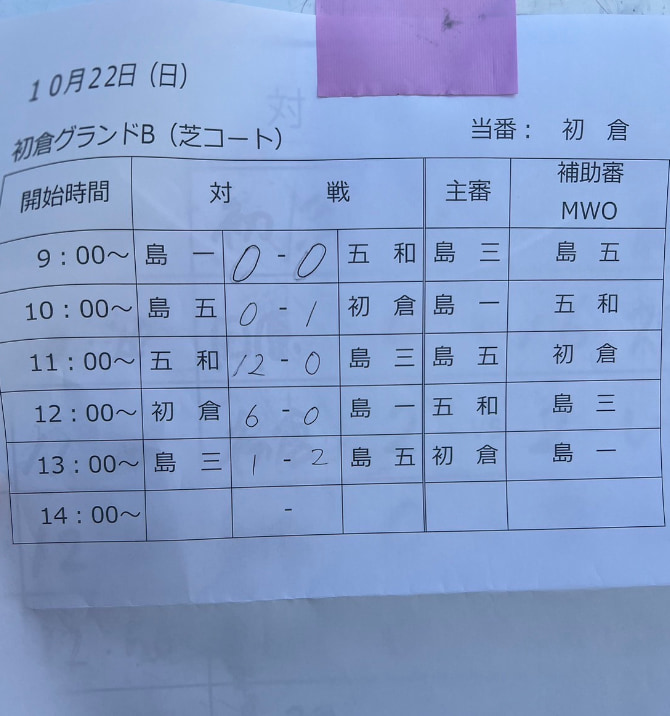 10月22日（日）
初倉グランドB（芝コート） 当番： 初 倉
開始時間 対 戦 主審 補助審 MWO
9：00～ 島 一 0 - 0 五 和 島 三 島 五
10：00～ 島 五 0 - 1 初 倉 島 一 五 和
11：00～ 五 和 12 - 0 島 三 島 五 初 倉
12：00～ 初 倉 6 - 0 島 一 五 和 島 三
13：00～ 島 三 1 - 2 島 五 初 倉 島 一
14：00～ -